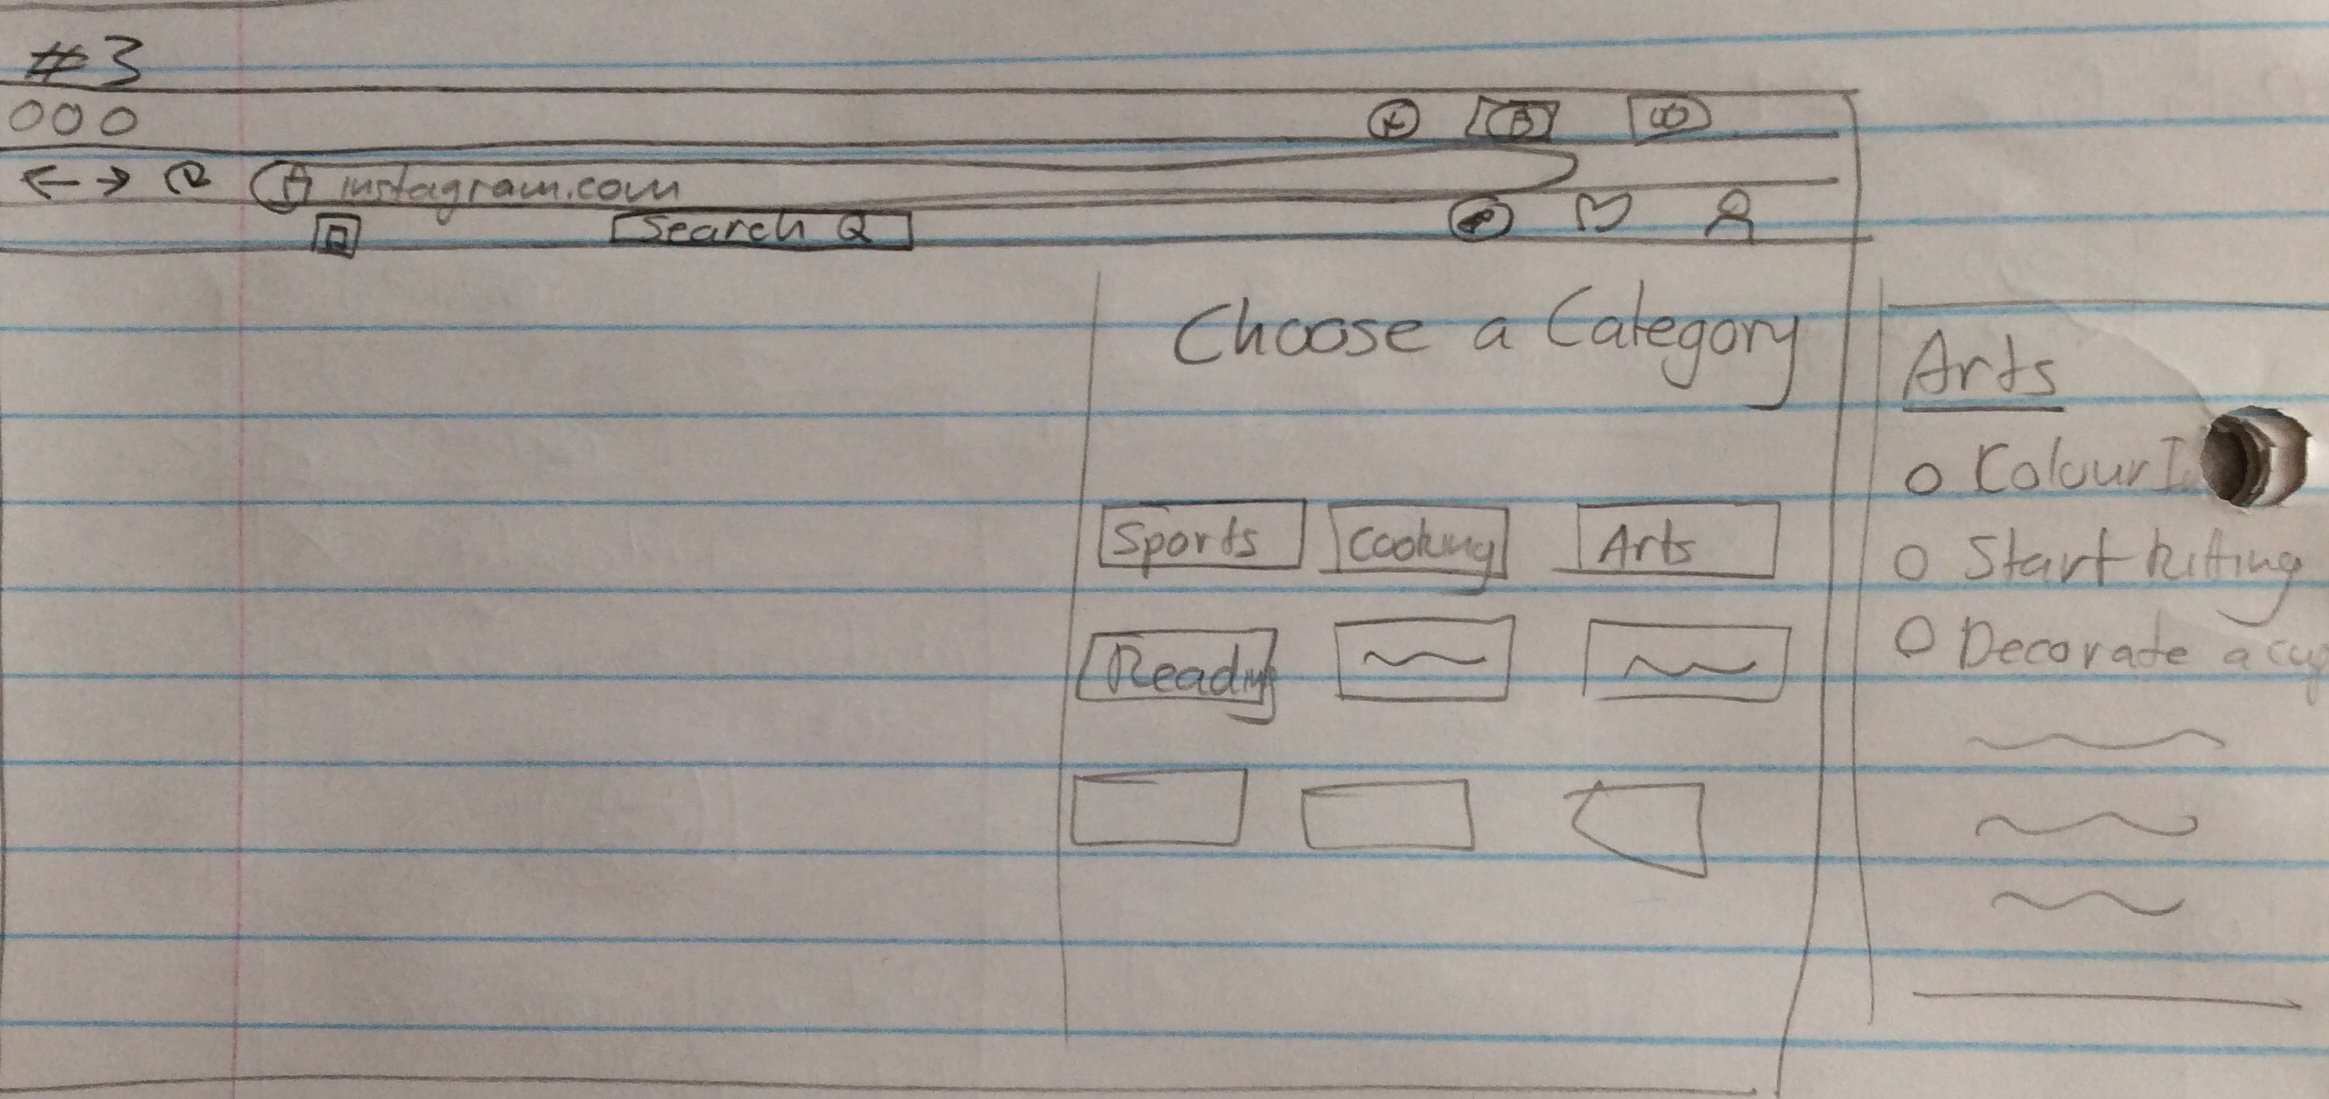 #3
instagram.com
Search
Choose a Category
Sports Cooking Arts
Reading
Arts
Colour I
Start kitting
Decorate a cup